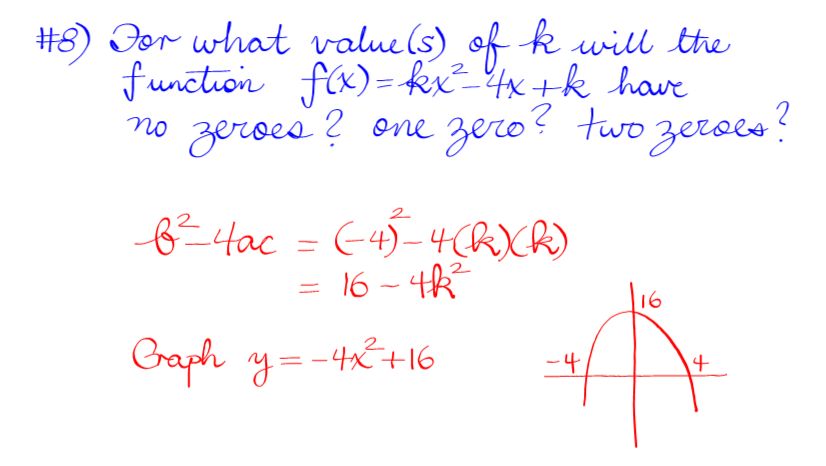 #8) For what value(s) of k will the
function f(x) = kx² - 4x + k have
no zeroes? one zero? two zeroes?
b² - 4ac = (-4)² - 4(k)(k)
= 16 - 4k²
16
Graph y = -4x² + 16
-4 4